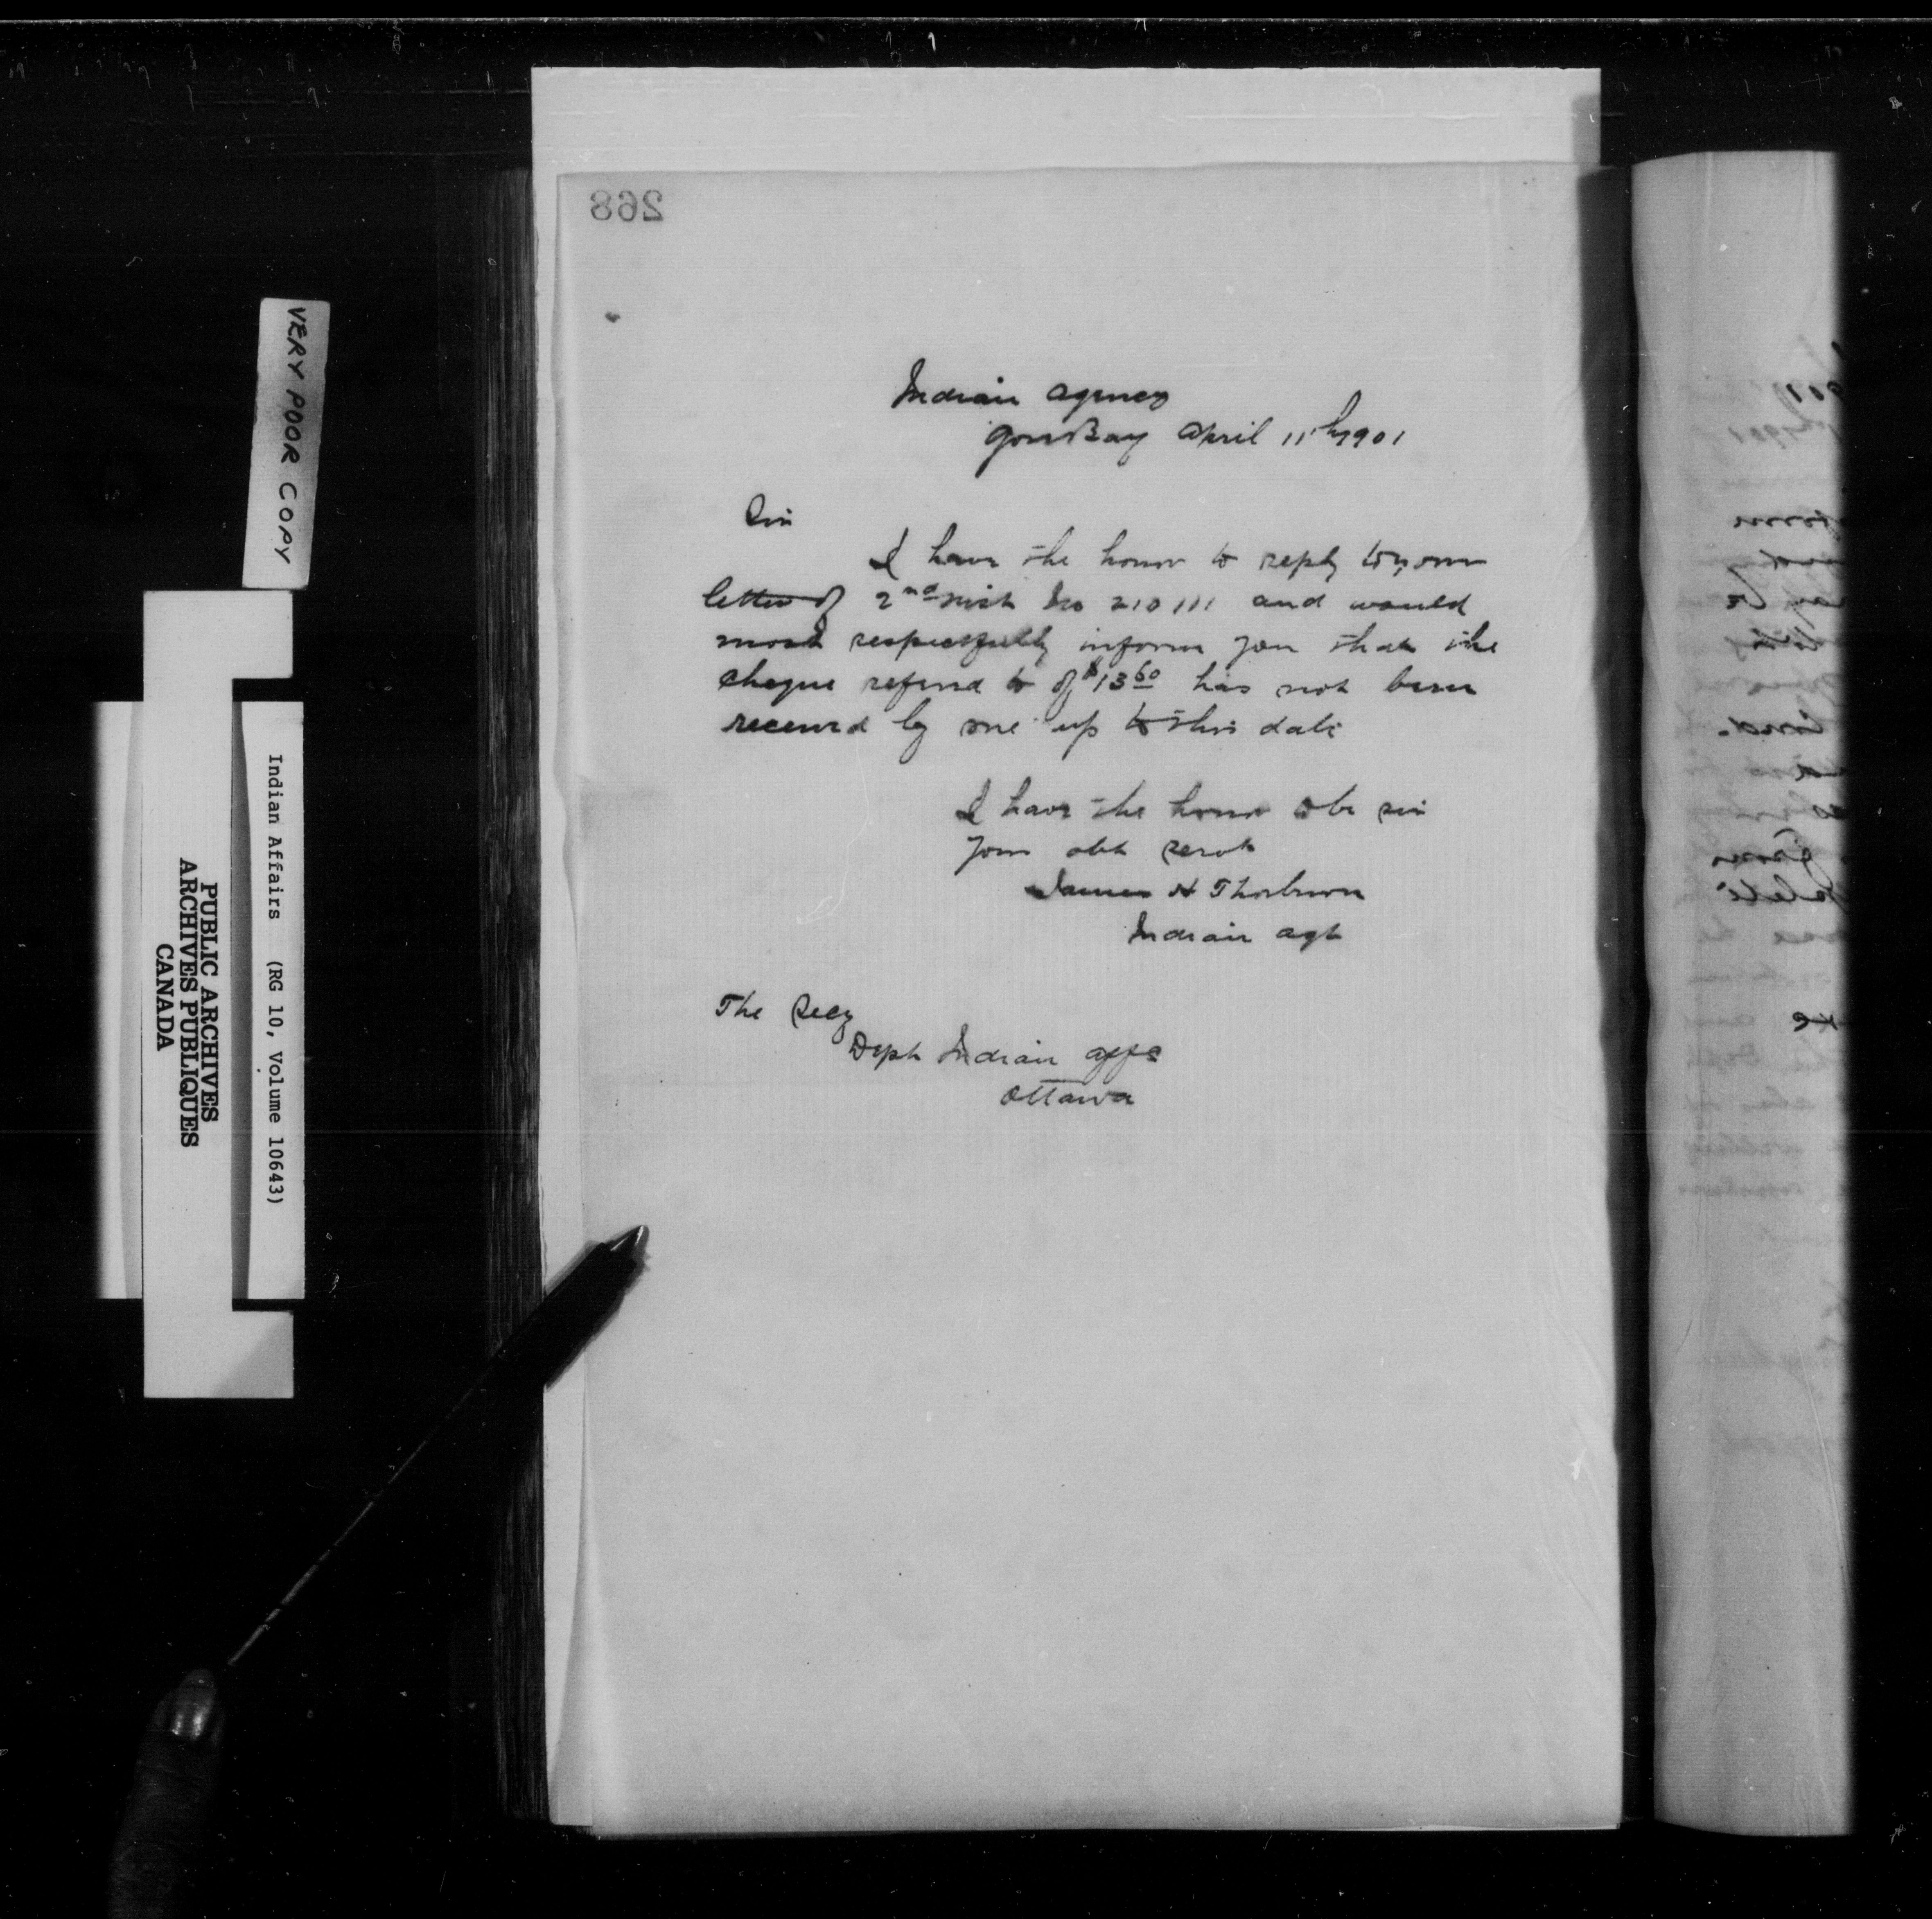 268
Indian Agency
Gore Bay April 11th 1901
Sir
I have the honor to reply to your
letter of 2nd inst No 210111 and would
most respectfully inform you that the
cheque referred to of $13 60 has not been
received by me up to this date
I have the honor to be sir
Your obt servt
James H Thorburn
Indian Agt
The Secy
Dept Indian Affs
Ottawa
VERY POOR COPY
Indian Affairs (RG 10, Volume 10643)
PUBLIC ARCHIVES
ARCHIVES PUBLIQUES
CANADA